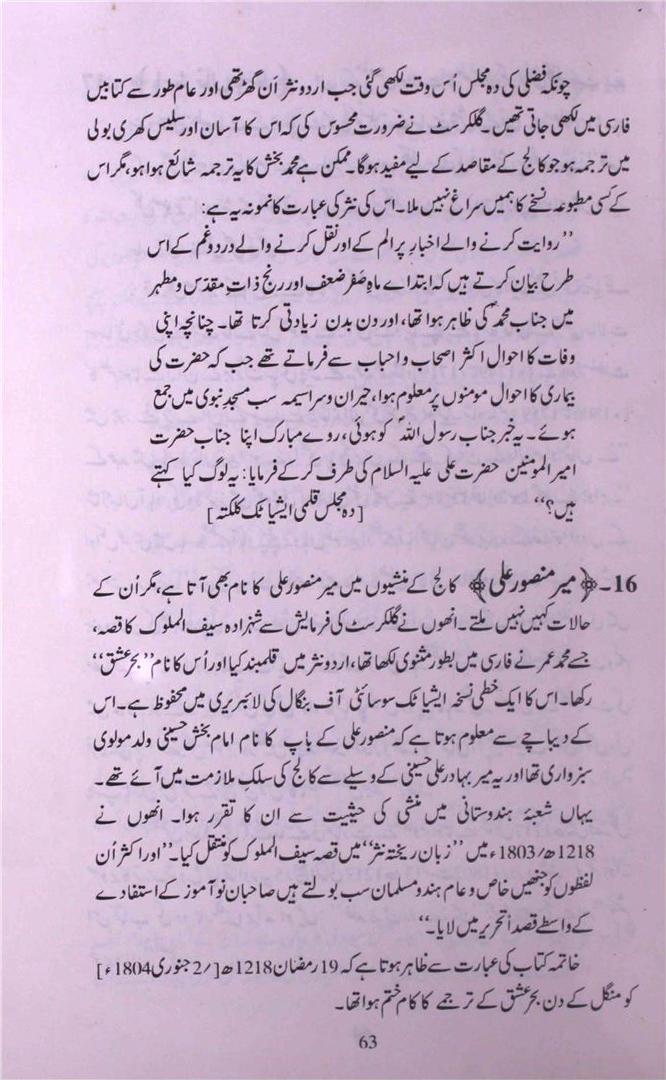 چونکہ فضلی کی دہ مجلس اُس وقت لکھی گئی جب اردو نثر اَن گھڑ تھی اور عام طور سے کتابیں
فارسی میں لکھی جاتی تھیں۔ گلکرسٹ نے ضرورت محسوس کی کہ اس کا آسان اور سلیس کھری بولی
میں ترجمہ ہو جو کالج کے مقاصد کے لیے مفید ہوگا۔ ممکن ہے محمد بخش کا یہ ترجمہ شائع ہوا ہو، مگر اس
کے کسی مطبوعہ نسخے کا ہمیں سراغ نہیں ملا۔ اس کی نثر کی عبارت کا نمونہ یہ ہے:
”روایت کرنے والے اخبارِ پر الم کے اور نقل کرنے والے درد و غم کے اس
طرح بیان کرتے ہیں کہ ابتداے ماہِ صفر ضعف اور رنج ذاتِ مقدس و مطہر
میں جناب محمدؐ کی ظاہر ہوا تھا، اور دن بدن زیادتی کرتا تھا۔ چنانچہ اپنی
وفات کا احوال اکثر اصحاب و احباب سے فرماتے تھے جب کہ حضرت کی
بیماری کا احوال مومنوں پر معلوم ہوا، حیران و سراسیمہ سب مسجدِ نبوی میں جمع
ہوئے۔ یہ خبر جناب رسول اللہ کو ہوئی، روے مبارک اپنا جناب حضرت
امیر المومنین حضرت علی علیہ السلام کی طرف کر کے فرمایا: یہ لوگ کیا کہتے
ہیں؟“ [دہ مجلس قلمی ایشیاٹک کلکتہ]
16۔ ﴿میر منصور علی﴾ کالج کے منشیوں میں میر منصور علی کا نام بھی آتا ہے، مگر اُن کے
حالات کہیں نہیں ملتے۔ انھوں نے گلکرسٹ کی فرمایش سے شہزادہ سیف الملوک کا قصہ،
جسے محمد عمر نے فارسی میں بطور مثنوی لکھا تھا، اردو نثر میں قلمبند کیا اور اُس کا نام ”بحرِ عشق“
رکھا۔ اس کا ایک خطی نسخہ ایشیاٹک سوسائٹی آف بنگال کی لائبریری میں محفوظ ہے۔ اس
کے دیباچے سے معلوم ہوتا ہے کہ منصور علی کے باپ کا نام امام بخش حسینی ولد مولوی
سبزواری تھا اور یہ میر بہادر علی حسینی کے وسیلے سے کالج کی سلکِ ملازمت میں آئے تھے۔
یہاں شعبۂ ہندوستانی میں منشی کی حیثیت سے ان کا تقرر ہوا۔ انھوں نے
1218ھ/1803ء میں ”زبان ریختہ نثر“ میں قصہ سیف الملوک کو منتقل کیا۔ ”اور اکثر اُن
لفظوں کو جنھیں خاص و عام ہندو مسلمان سب بولتے ہیں صاحبانِ نو آموز کے استفادے
کے واسطے قصداً تحریر میں لایا۔“
خاتمہ کتاب کی عبارت سے ظاہر ہوتا ہے کہ 19 رمضان 1218ھ [/2 جنوری 1804ء]
کو منگل کے دن بحرِ عشق کے ترجمے کا کام ختم ہوا تھا۔
63